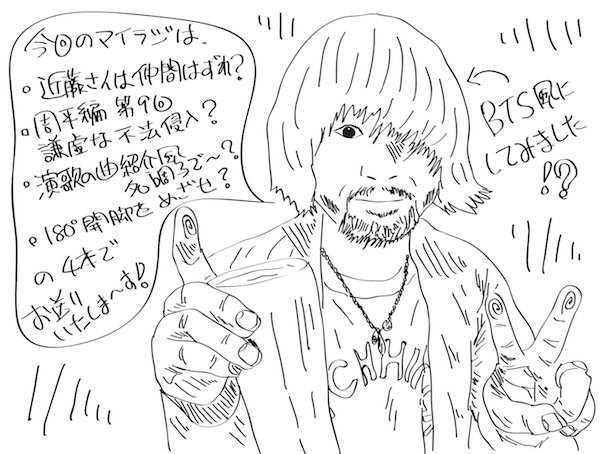 今回のマイラジは、
・近藤さんは仲間はずれ?
・周平編 第9回
謙虚な不法侵入?
・演歌の曲紹介風
名調子で〜?
・180°開脚をめざせ?
の4本で
お送り
いたしま〜す!
BTS風に
してみました
!?
CHHII